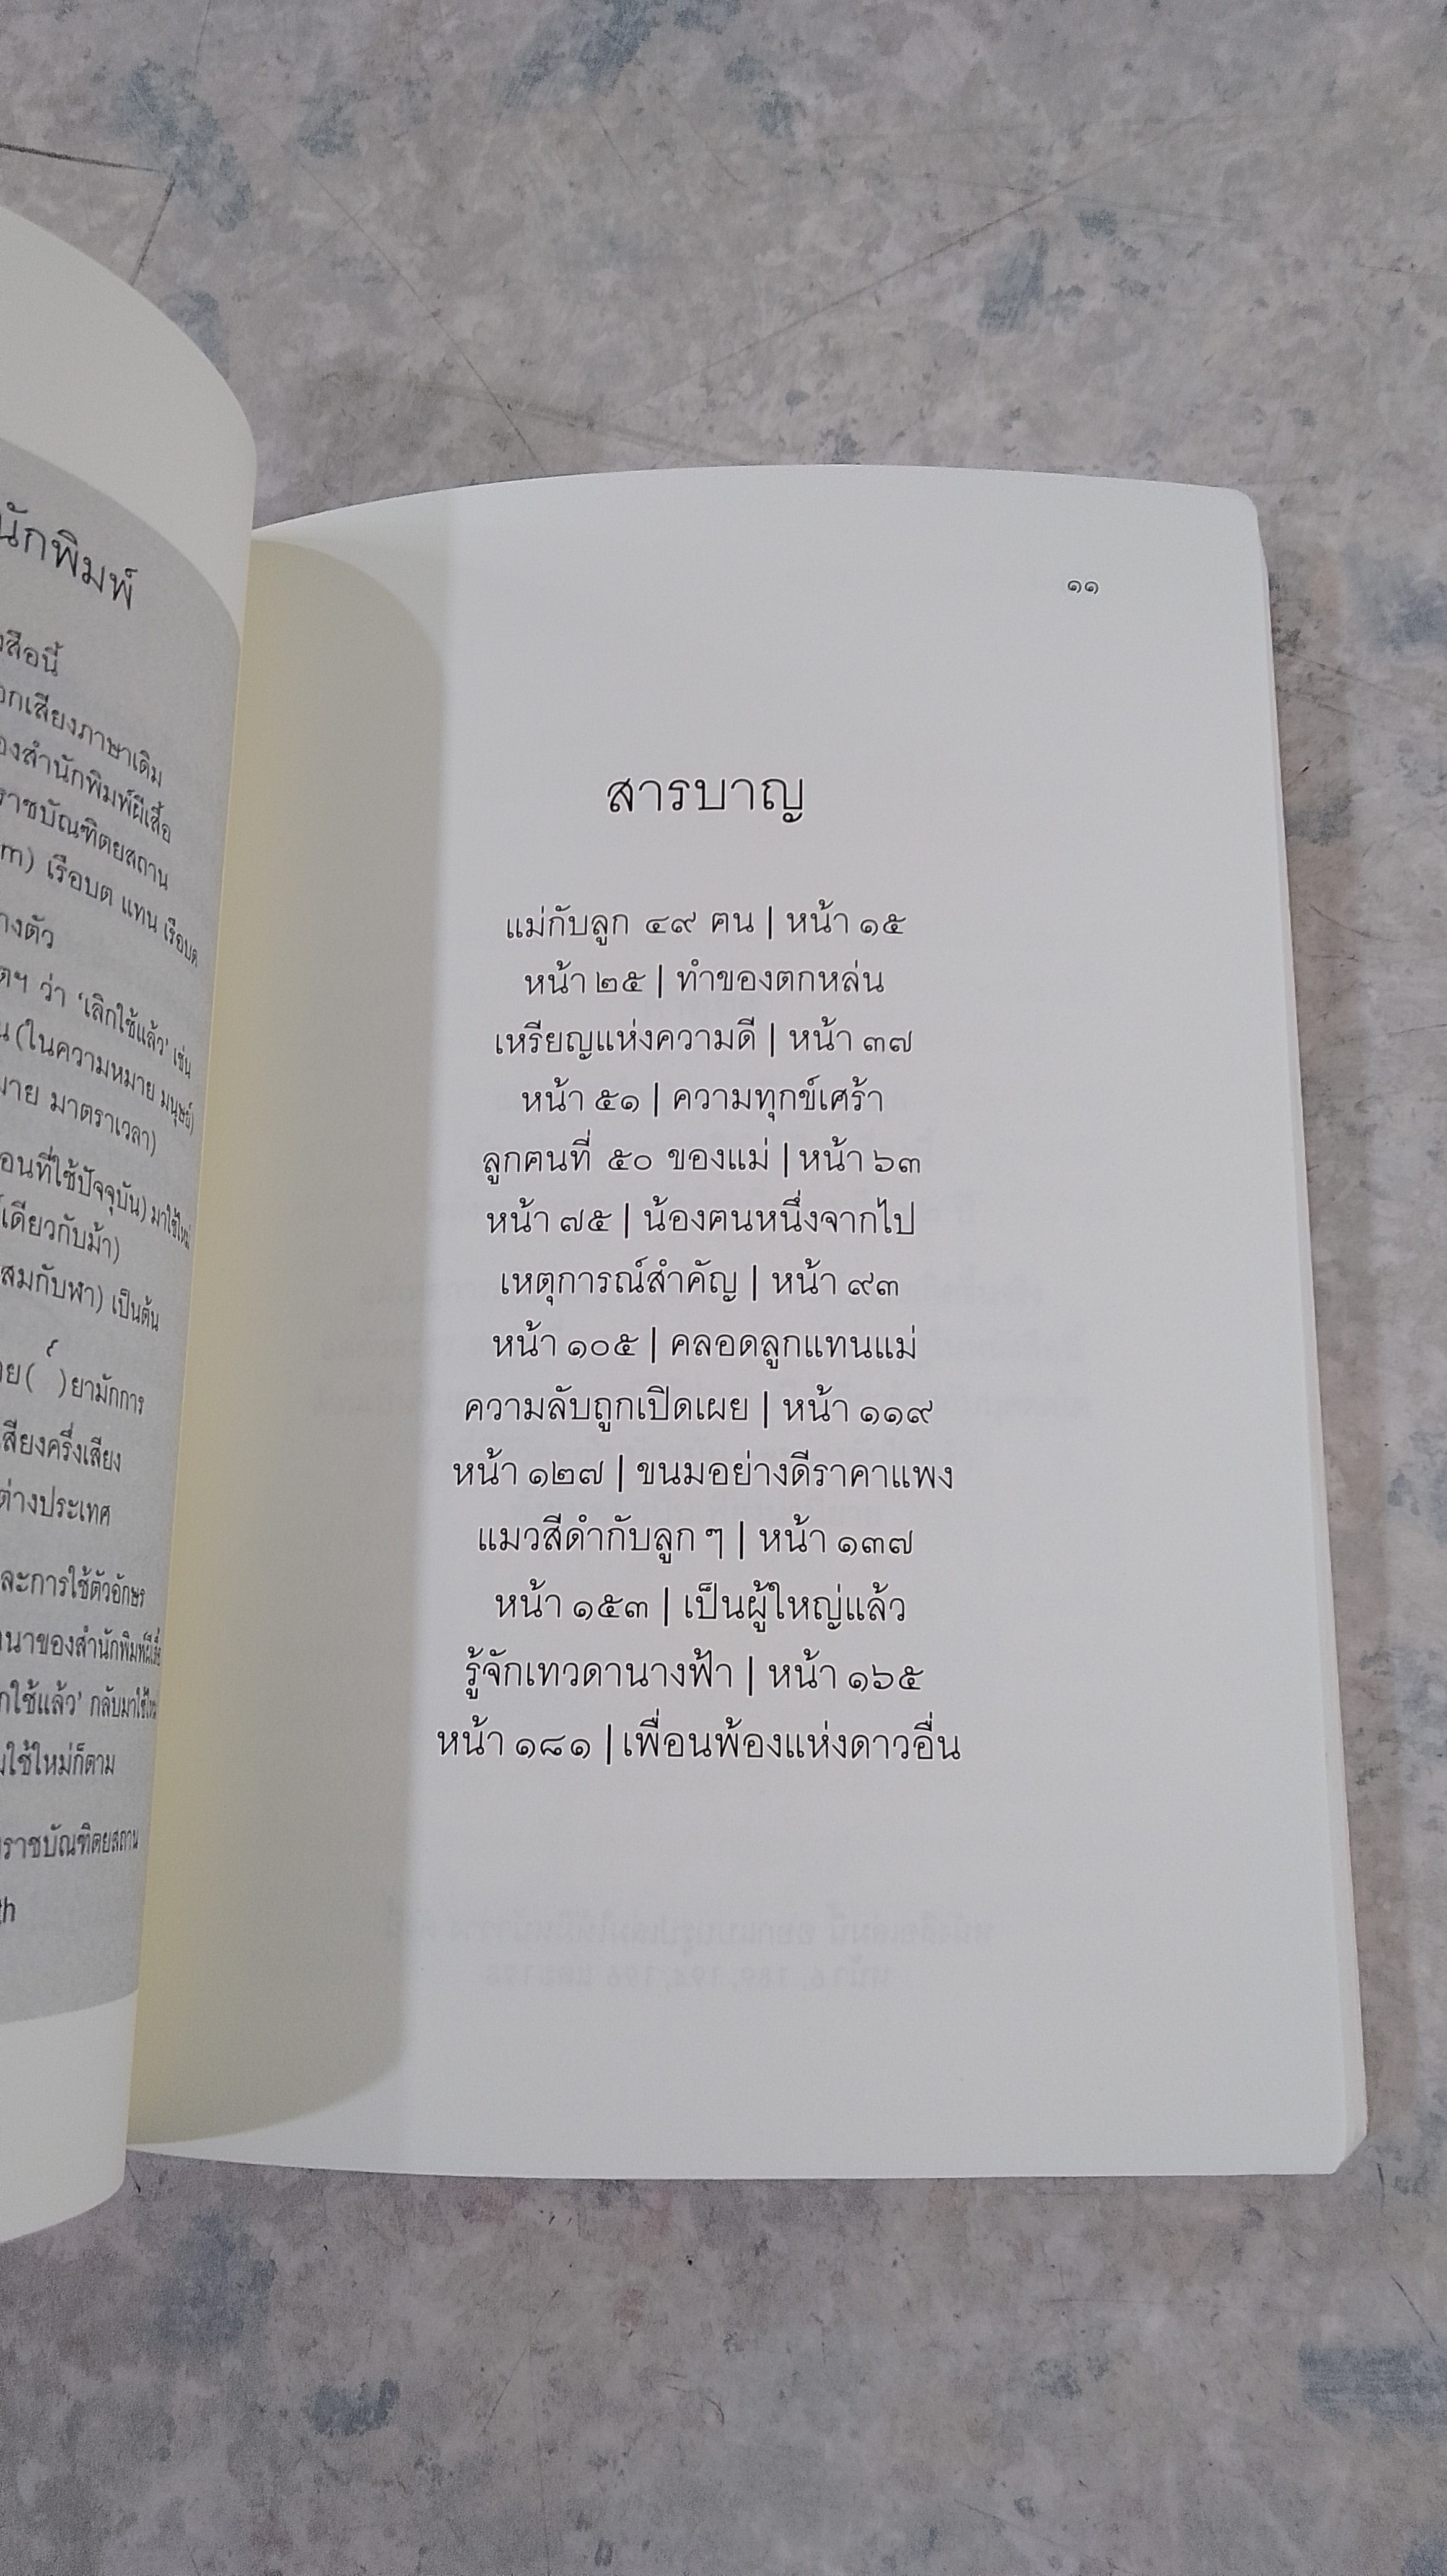 นักพิมพ์
สือนี้
อกเสียงภาษาเดิม
องสำนักพิมพ์ผีเสื้อ
ราชบัณฑิตยสถาน
m) เรือบต แทน เรือบด
างตัว
ตฯ ว่า ‘เลิกใช้แล้ว’ เช่น
น (ในความหมาย มนุษย์)
มาย มาตราเวลา)
อนที่ใช้ปัจจุบัน) มาใช้ใหม่
เดียวกับม้า)
สมกับฬา) เป็นต้น
ย( ์ )ยามักการ
สียงครึ่งเสียง
ต่างประเทศ
ละการใช้ตัวอักษร
นาของสำนักพิมพ์ผีเสื้อ
กใช้แล้ว’ กลับมาใช้ใหม่
ใช้ใหม่ก็ตาม
ราชบัณฑิตยสถาน
th
๑๑
สารบาญ
แม่กับลูก ๔๙ ฅน | หน้า ๑๕
หน้า ๒๕ | ทำของตกหล่น
เหรียญแห่งความดี | หน้า ๓๗
หน้า ๕๑ | ความทุกข์เศร้า
ลูกฅนที่ ๕๐ ของแม่ | หน้า ๖๓
หน้า ๗๕ | น้องฅนหนึ่งจากไป
เหตุการณ์สำคัญ | หน้า ๙๓
หน้า ๑๐๕ | คลอดลูกแทนแม่
ความลับถูกเปิดเผย | หน้า ๑๑๙
หน้า ๑๒๗ | ขนมอย่างดีราคาแพง
แมวสีดำกับลูก ๆ | หน้า ๑๓๗
หน้า ๑๕๓ | เป็นผู้ใหญ่แล้ว
รู้จักเทวดานางฟ้า | หน้า ๑๖๕
หน้า ๑๘๑ | เพื่อนพ้องแห่งดาวอื่น